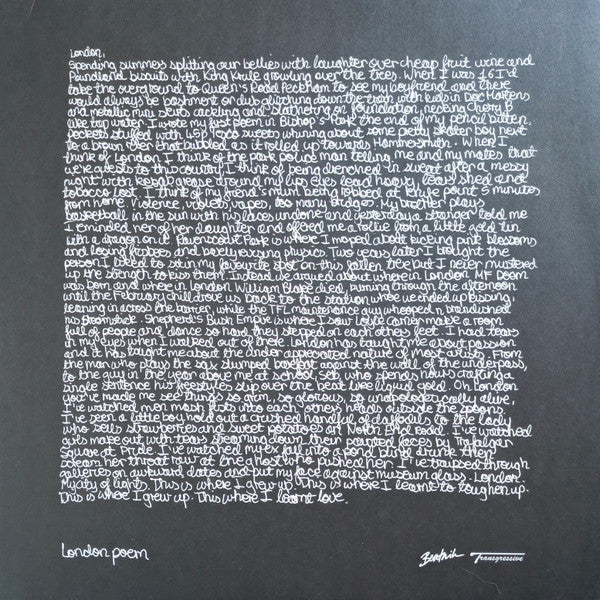 London,
Spending summers splitting our bellies with laughter over cheap fruit wine and
Poundland biscuits with King Krule growling over the trees. When I was 16 I'd
take the overground to Queen's Road Peckham to see my boyfriend and there
would always be bashment or dubs glitching down the train with kids in Doc Martens
and metallic mini skirts cackling and slathering on foundation, nesting Cherry B
like tap water. I wrote my first poem in Bishop's Park the end of my pencil bitten,
pockets stuffed with 65p Tesco sweets whining about some petty skater boy next
to a brown river that bubbled as it rolled up towards Hammersmith. When I
think of London I think of the park police man telling me and my mates that
we're guests to this country. I think of being drenched in sweat after a messy
night with kebab grease around my lips eyes road heavy, tears shed and
tobacco lost. I think of my friend's mum being robbed at knife point 5 minutes
from home. Violence, violets, vapes, too many bridges. My brother plays
basketball in the sun with his laces undone and yesterday a stranger told me
I reminded her of her daughter and offered me a rollie from a little gold tin
with a dragon on it. Ravenscourt Park is where I moped about kicking pink blossoms
and losing frisbees and barely revising physics. Two years later I brought the
person I liked to sit in my favourite spot on this fallen tree but I never mustered
up the strength to kiss them. Instead we argued about where in London MF Doom
was born and where in London William Blake died, humming through the afternoon
until the February chill drove us back to the station where we ended up kissing,
leaning in across the barrier, while the TFL maintenance guy whooped n brandished
his broomstick. Shepherd's Bush Empire is where I saw Loyle Carner make a room
full of people and dance so hard they stepped on each others feet. I had tears
in my eyes when I walked out of there. London has taught me about passion
and it has taught me about the under appreciated nature of most artists. From
the man who plays the sax slumped barefoot against the wall of the underpass,
to the guy in the year above me at school, Seb, who spends days cracking a
single sentence his freestyles slip over the beat like liquid gold. Oh London
you've made me see things so grim, so glorious, so unapologetically alive,
I've watched men mash fists into each others heads outside the spoons,
I've seen a little boy hold out a crushed handful of daffodils to the lady
who sells strawberries and sweet potatoes at North End Road. I've watched
girls make out with tears streaming down their painted faces by Trafalgar
Square at Pride. I've watched my ex fall into a pond blind drunk then
scream her throat raw at the ghost who pushed her. I've traipsed through
galleries on awkward dates and butt my face against museum glass. London.
My city of lights. This is where I grew up. This is where I learnt to toughen up.
This is where I grew up. This where I learnt love.
London poem
Beatnik
Transgressive